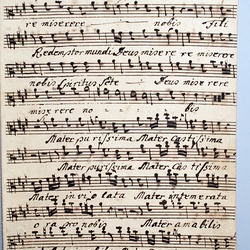 re miserere nobis Fili
Redemptor mundi Deus misere re miserere
nobis Spiritus Ste Deus misere
miserere no bis
Mater purissima Mater Castissima
Mater purissima Mater Castissima
Mater inviolata Mater intemerata
ora pro nobis Mater amabilis